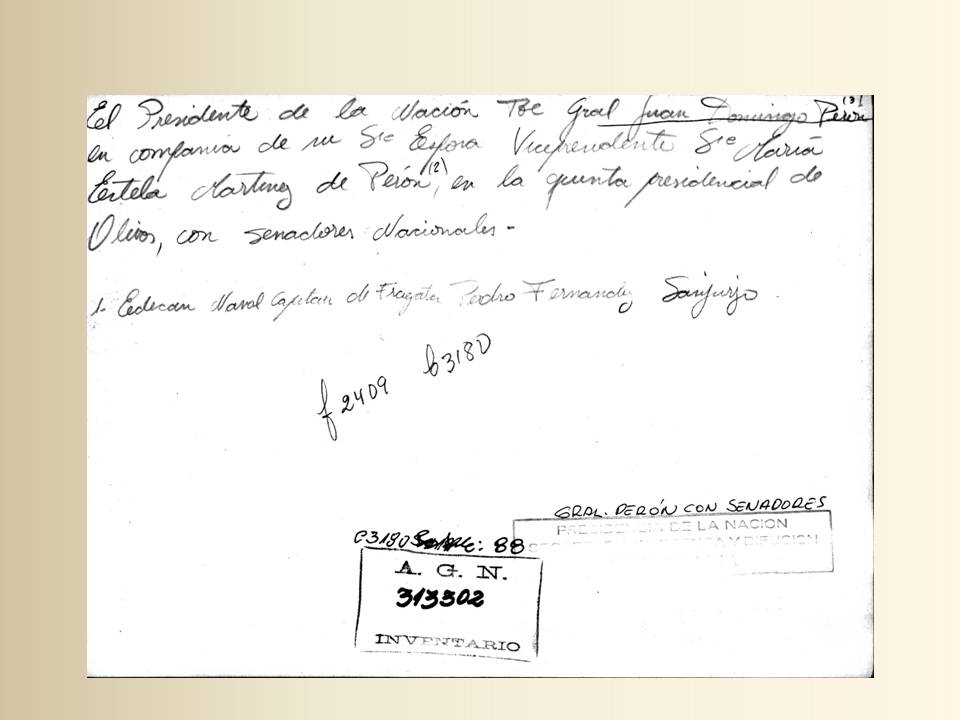 El Presidente de la Nación Tte Gral Juan Domingo Perón (3)
en compania de su Sra Esposa Vicepresidente Sra Maria
Estela Martinez de Perón (2), en la quinta presidencial de
Olivos, con senadores Nacionales -
1- Edecan Naval Capitan de Fragata Pedro Fernandez Sanjurjo.
f2409 b3180
GRAL. PERÓN CON SENADORES
PRESIDENCIA DE LA NACION
PRENSA Y DIFUCION
C3180 Sobre: 88
A. G. N.
313302
INVENTARIO